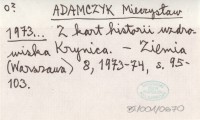 O2 ADAMCZYK Mieczysław
1973... Z kart historii uzdro-
wiska Krynica. - Ziemia
(Warszawa) 8, 1973-74, s. 95-
103.